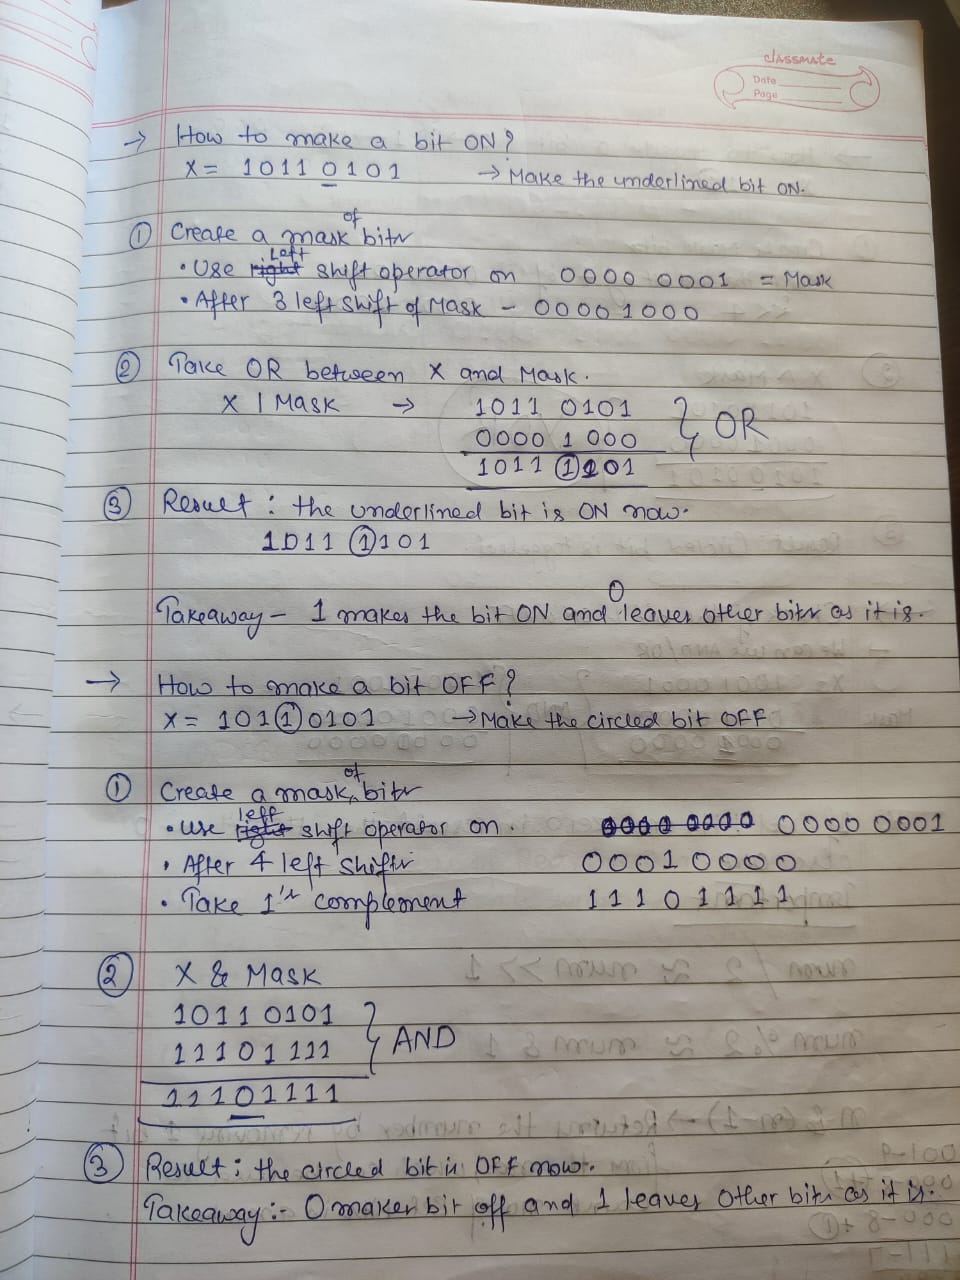 classmate
Date
Page
→ How to make a bit ON?
X = 1011 0101 → Make the underlined bit ON.
① Create a mask of bits
• Use right Left shift operator on 0000 0001 = Mask
• After 3 left shift of Mask - 00001000
② Take OR between X and Mask.
X | Mask → 1011 0101
0000 1000 } OR
1011 1101
③ Result: the underlined bit is ON now.
1011 1101
Takeaway - 1 makes the bit ON and 0 leaves other bits as it is.
→ How to make a bit OFF?
X = 101 1 0101 → Make the circled bit OFF
① Create a mask of bits
• Use right left shift operator on. 0000 0000 0000 0001
• After 4 left shifts 00010000
• Take 1's complement 11101111
② X & Mask
10110101
11101111 } AND
11101111
③ Result: the circled bit is OFF now.
Takeaway:- 0 makes bit off and 1 leaves other bits as it is.